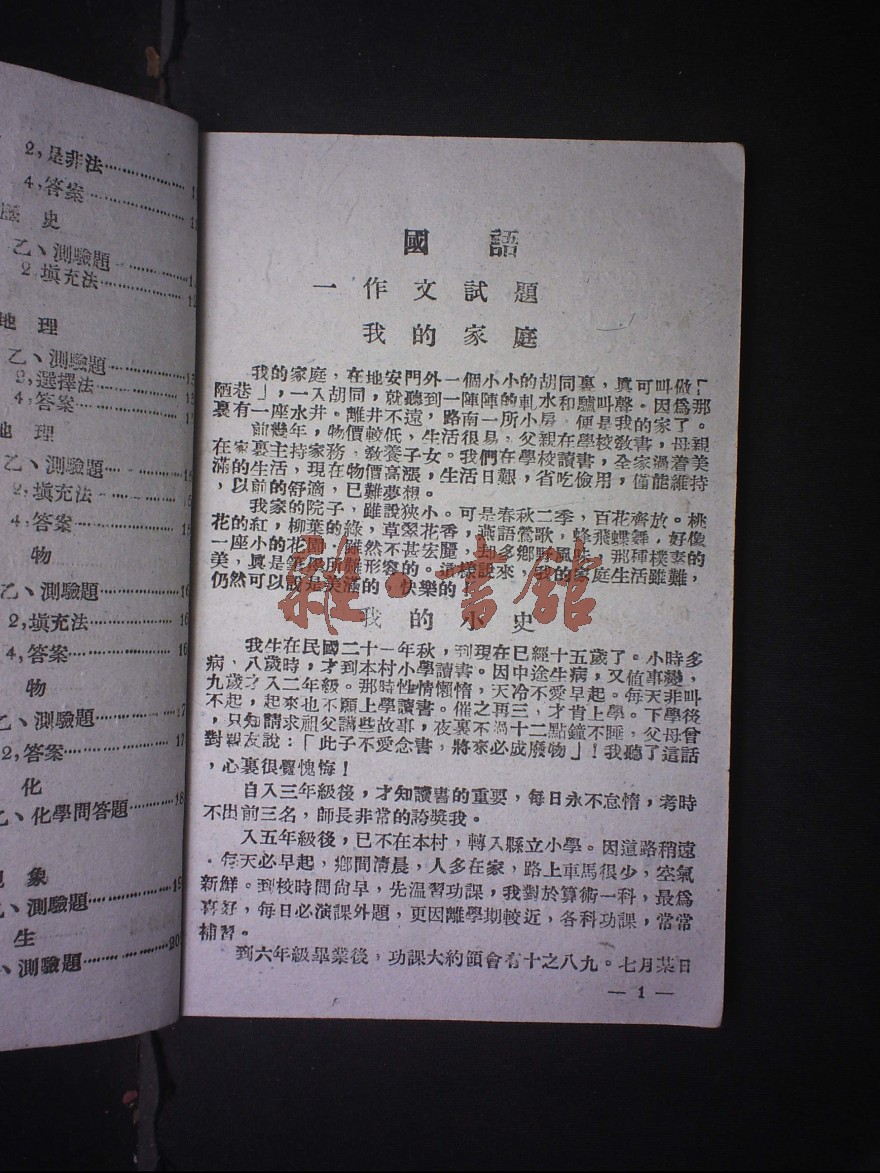 2,是非法
4,答案
歷 史
乙、測驗題
2,填充法
地 理
乙、測驗題
2,選擇法
4,答案
地 理
乙、測驗題
2,填充法
4,答案
物
乙、測驗題
2,填充法
4,答案
物
乙、測驗題
2,答案
化
乙、化學問答題
象
測驗題
生
測驗題
國 語
一 作 文 試 題
我 的 家 庭
我的家庭，在地安門外一個小小的胡同裏，眞可叫做「
陋巷」，一入胡同，就聽到一陣陣的軋水和驢叫聲。因爲那
裏有一座水井。離井不遠，路南一所小房，便是我的家了。
前幾年，物價較低，生活很易，父親在學校敎書，母親
在家裏主持家務，敎養子女。我們在學校讀書，全家過着美
滿的生活，現在物價高漲，生活日艱，省吃儉用，僅能維持
，以前的舒適，已難夢想。
我家的院子，雖說狹小。可是春秋二季，百花齊放。桃
花的紅，柳葉的綠，草翠花香，燕語鶯歌，蜂飛蝶舞，好像
一座小的花園，雖然不甚宏麗，却多鄉野風味，那種樸素的
美，眞是筆墨所難形容的。這樣說來，我的家庭生活雖難，
仍然可以說是美滿的，快樂的
我 的 小 史
我生在民國二十一年秋，到現在已經十五歲了。小時多
病，八歲時，才到本村小學讀書。因中途生病，又值事變，
九歲才入二年級。那時性情懶惰，天冷不愛早起。每天非叫
不起，起來也不願上學讀書。催之再三，才肯上學。下學後
，只知請求祖父講些故事，夜裏不過十二點鐘不睡，父母曾
對親友說：「此子不愛念書，將來必成廢物」！我聽了這話
，心裏很覺愧悔！
自入三年級後，才知讀書的重要，每日永不怠惰，考時
不出前三名，師長非常的誇獎我。
入五年級後，已不在本村，轉入縣立小學。因道路稍遠
，每天必早起，鄉間淸晨，人多在家，路上車馬很少，空氣
新鮮。到校時間尙早，先溫習功課，我對於算術一科，最爲
喜好，每日必演課外題，更因離學期較近，各科功課，常常
補習。
到六年級畢業後，功課大約領會有十之八九。七月某日
— 1 —
雜·書館